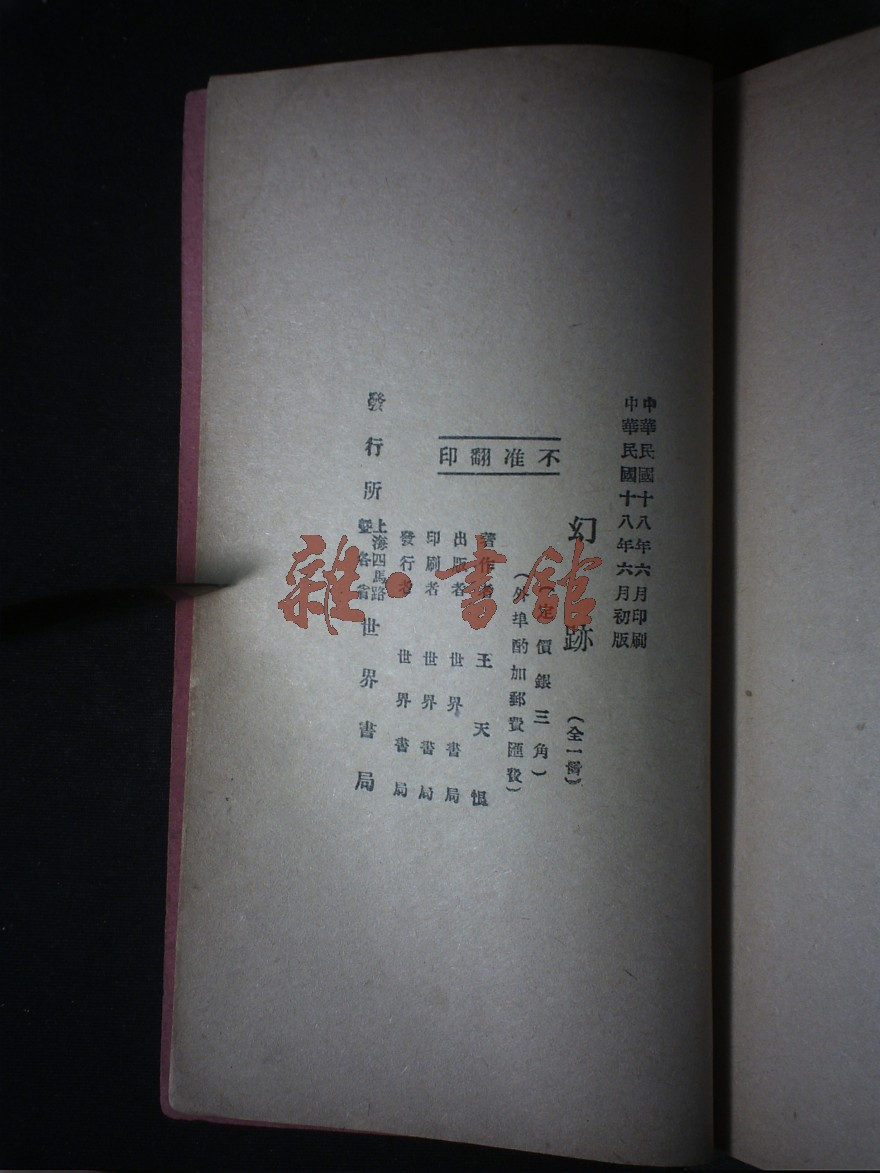 中華民國十八年六月印刷
中華民國十八年六月初版
幻跡（全一冊）
（定價銀三角）
（外埠酌加郵費匯費）
不准翻印
著作者 王天恨
出版者 世界書局
印刷者 世界書局
發行者 世界書局
發行所 上海四馬路暨各省 世界書局
雜·書館